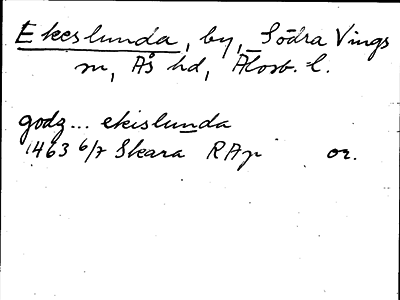 Ekeslunda, by, Södra Vings
sn, Ås hd, Älvsb. l.
godz... ekislunda
1463 6/7 Skara RAp or.